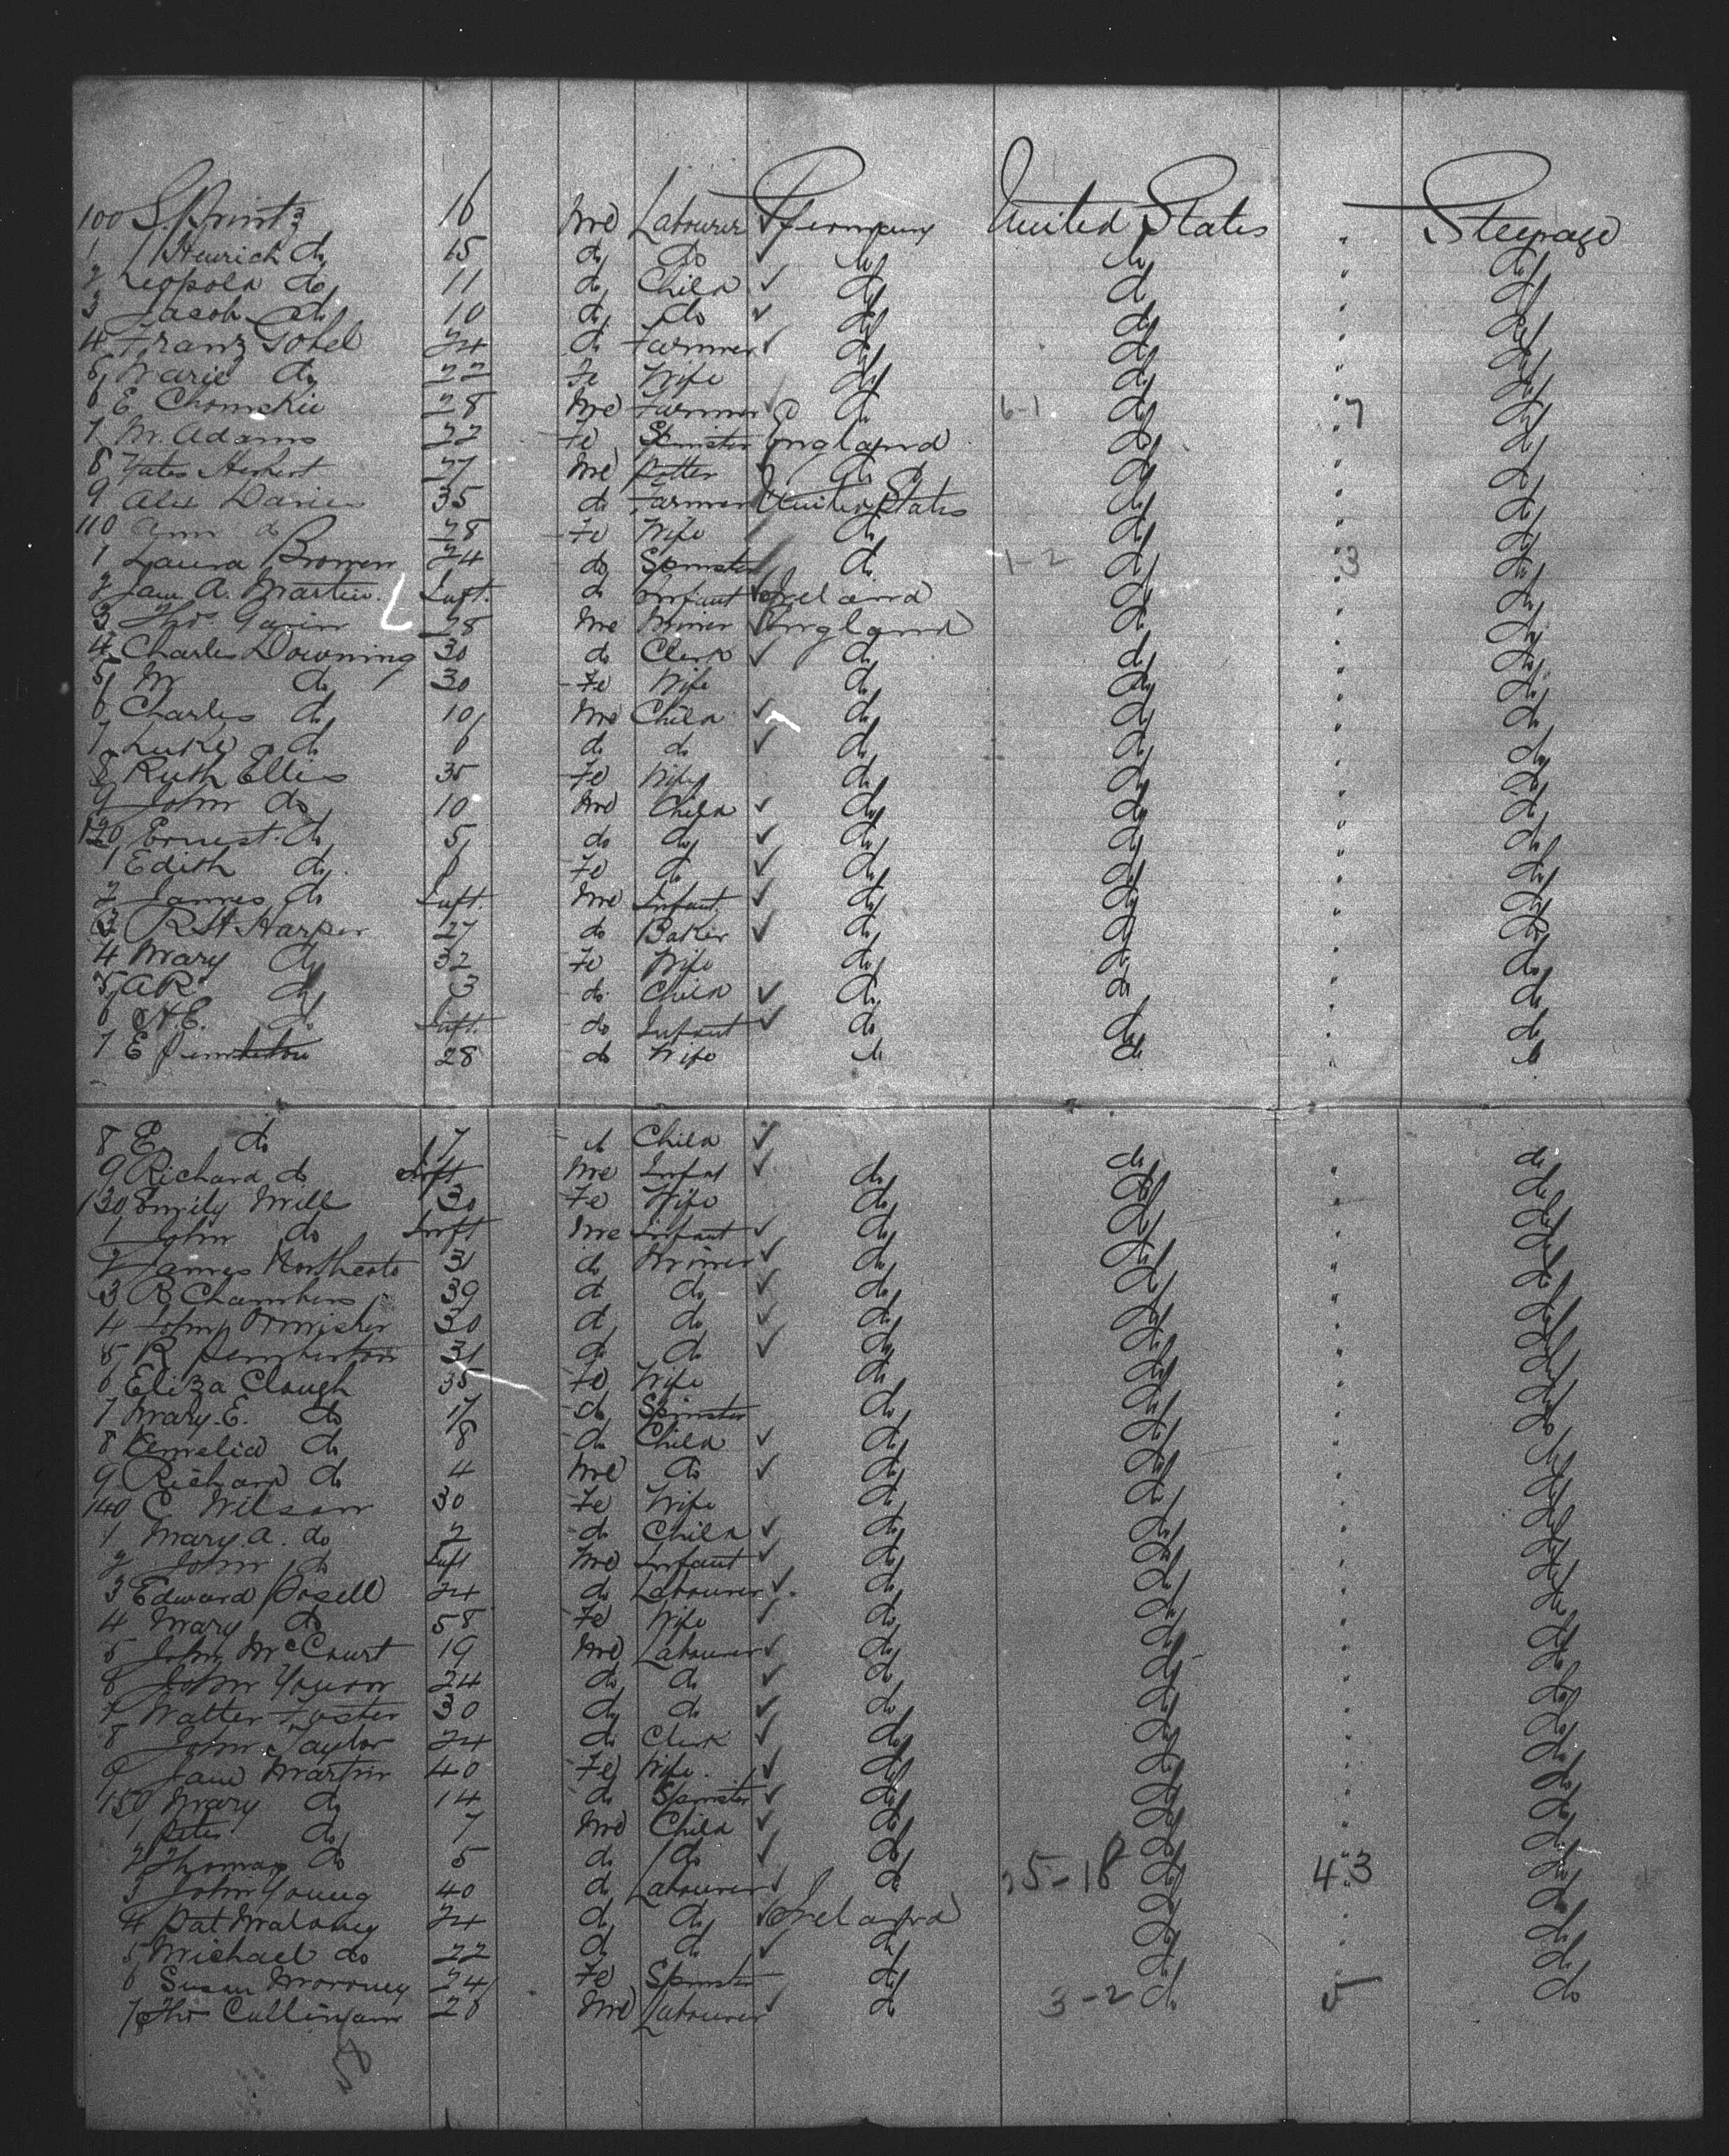 100 S. Printz 16 Me Labourer ✓ Germany United States " Steerage
1 Heinrich do 15 do do ✓ do do " do
2 Leopold do 11 do Child ✓ do do " do
3 Jacob do 10 do do ✓ do do " do
4 Franz Gobel 24 do Farmer ✓ do do " do
5 Marie do 22 Fe Wife do do " do
6 E Chomskie 28 Me Farmer ✓ do 6-1 do " 7 do
7 M. Adams 22 Fe Spinster England do " do
8 Yates Herbert 27 Me Potter ✓ do do " do
9 Alex Davies 35 do Farmer United States do " do
110 Ann do 28 Fe Wife do do " do
1 Laura Brown 24 do Spinster do 1-2 do " 3 do
2 Jane A. Martin. Inft. do Infant ✓ Ireland do " do
3 Thos Gavin 28 Me Miner ✓ England do " do
4 Charles Downing 30 do Clerk ✓ do do " do
5 M do 30 Fe Wife do do " do
6 Charles do 10 Me Child ✓ do do " do
7 Luke do 6 do do ✓ do do " do
8 Ruth Ellis 35 Fe Wife do do " do
9 John do 10 Me Child ✓ do do " do
120 Ernest do 5 do do ✓ do do " do
1 Edith do Fe do ✓ do do " do
2 James do Inft. Me Infant ✓ do do " do
3 R H Harper 27 do Baker ✓ do do " do
4 Mary do 32 Fe Wife do do " do
5 A R do 3 do Child ✓ do do " do
6 H. E. do Inft. do Infant ✓ do do " do
7 E Pemberton 28 do Wife do do " do
8 E do 7 do Child ✓
9 Richard do Inft Me Infant ✓ do do " do
130 Emily Mill 30 Fe Wife do do " do
1 John do Inft Me Infant ✓ do do " do
2 James Northcote 31 do Miner ✓ do do " do
3 R Chambers 39 do do ✓ do do " do
4 John Ormister 30 do do ✓ do do " do
5 R Pemberton 31 do do ✓ do do " do
6 Eliza Clough 35 Fe Wife do do " do
7 Mary E. do 17 do Spinster do do " do
8 do 8 do Child ✓ do do " do
9 Richard do 4 Me do ✓ do do " do
140 C Wilson 30 Fe Wife do do " do
1 Mary A. do 2 do Child ✓ do do " do
2 John do Inft Me Infant ✓ do do " do
3 Edward 24 do Labourer ✓ do do " do
4 Mary do 58 Fe Wife ✓ do do " do
5 John McCourt 19 Me Labourer ✓ do do " do
6 John 24 do do ✓ do do " do
7 Walter Foster 30 do do ✓ do do " do
8 John Taylor 24 do Clerk ✓ do do " do
9 Jane Martin 40 Fe Wife ✓ do do " do
150 Mary do 14 do Spinster ✓ do do " do
1 Peter do 7 Me Child ✓ do do " do
2 Thomas do 5 do do ✓ do do " do
3 John Young 40 do Labourer ✓ do 25-18 do 43 do
4 Pat Maloney 24 do do ✓ Ireland do " do
5 Michael do 22 do do ✓ do do " do
6 Susan Moroney 24 Fe Spinster do do " do
7 Thos Cullinan 28 Me Labourer ✓ do 3-2 do 5 do
58